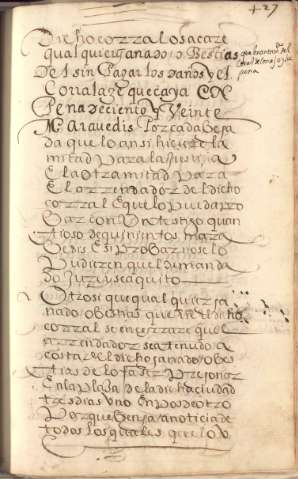 427
Dicho corral o sacare
qualquier ganado o Bestias
De el sin Pagar los daños y el
Corralaje que caya En
Pena de ciento y Veinte
Maravedis Por cada Veza
da que lo ansi hiziere la
mitad Para la
E la otra mitad Para
El arrendador de el dicho
corral E que lo Pueda pro
bar con Un testigo quan
tioso de quinientos mara
bedis E si Probar no se lo
Pudieren que el demanda
do Jure y sea quito
Otrosi que qual quier ga
nado o bestias que en el dicho
corral se encerrare que el
arrendador sea tenudo a
costa de el dicho ganado o bes
tias de lo fazer Pregonar
En la Plaza de la dicha ciudad
tres dias Uno En Pos de otro
Porque Benga a noticia de
todos los quales